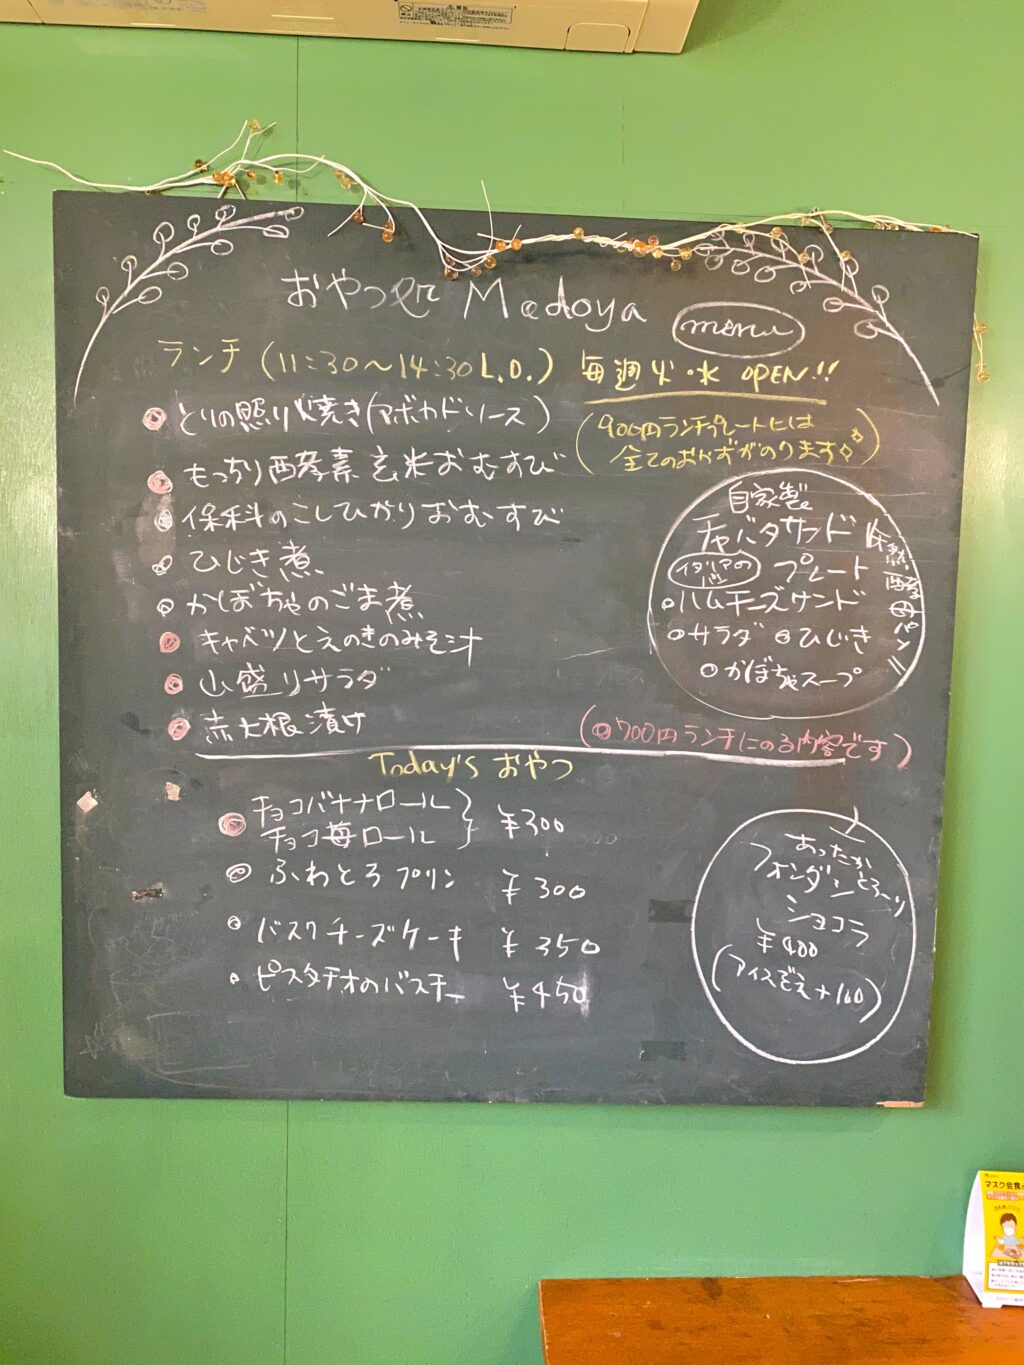 おやつ処 Madoya
menu
ランチ (11:30〜14:30 L.O.) 毎週火・水 OPEN!!
(900円ランチプレートには
全てのおかずがのります)
とりの照り焼き(アボカドソース)
もっちり酵素玄米おむすび
保科のこしひかりおむすび
ひじき煮
かぼちゃのごま煮
キャベツとえのきのみそ汁
山盛りサラダ
赤大根漬け
自家製
チャバタサンド
イタリアのパン プレート
ハムチーズサンド
サラダ ひじき
かぼちゃスープ
酵母パン
(◎700円ランチにのる内容です)
Today's おやつ
チョコバナナロール
チョコ苺ロール ¥300
ふわとろプリン ¥300
バスクチーズケーキ ¥350
ピスタチオのバスチー ¥450
あったか
とろ〜り
フォンダン
ショコラ
¥400
(アイスぞえ+100)
マスク会食